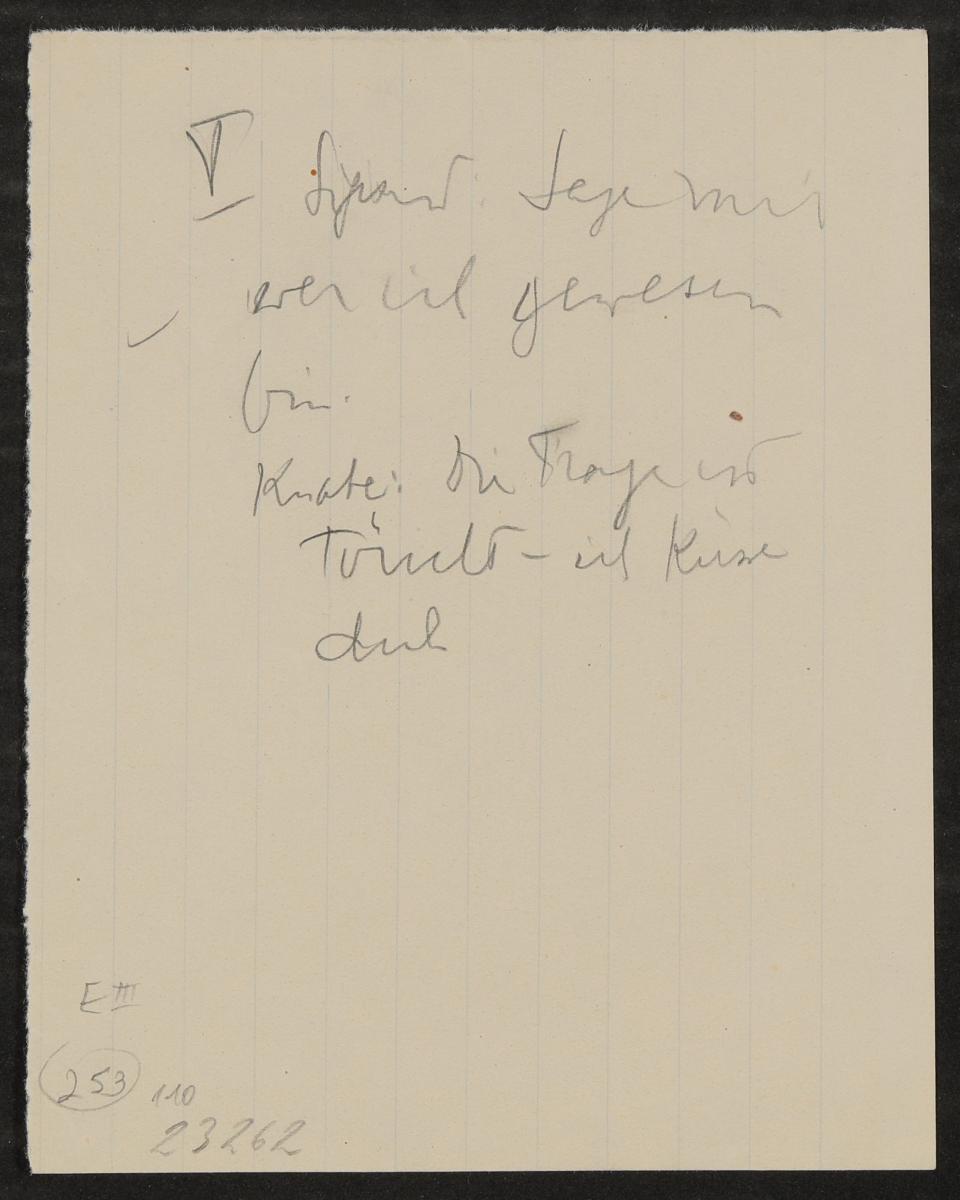 V Sigism: Sage mir
wer ich gewesen
bin.
Knabe: Die Frage ist
töricht – ich küsse
dich
E III
253
110
23262